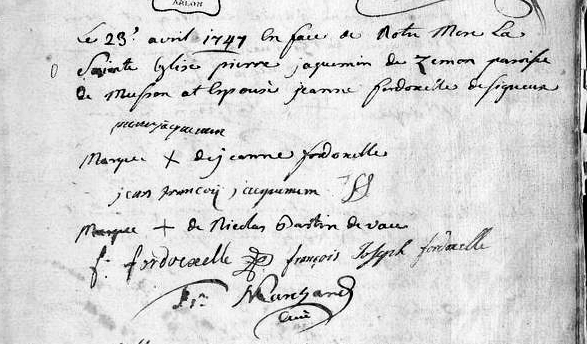 ARLON
Le 23e avril 1747 En face de Notre Mere La
Sainte Eglise pierre jaquemin de paroisse
de Musson at Epousé jeanne fordoxelle de signeux
pierre jaquemin
Marque + de jeanne fordoxelle
jean francoij jacquemin
Marque + de Nicolas de vaux
f. fordoxelle françois Joseph fordoxelle
Marchand
Curé